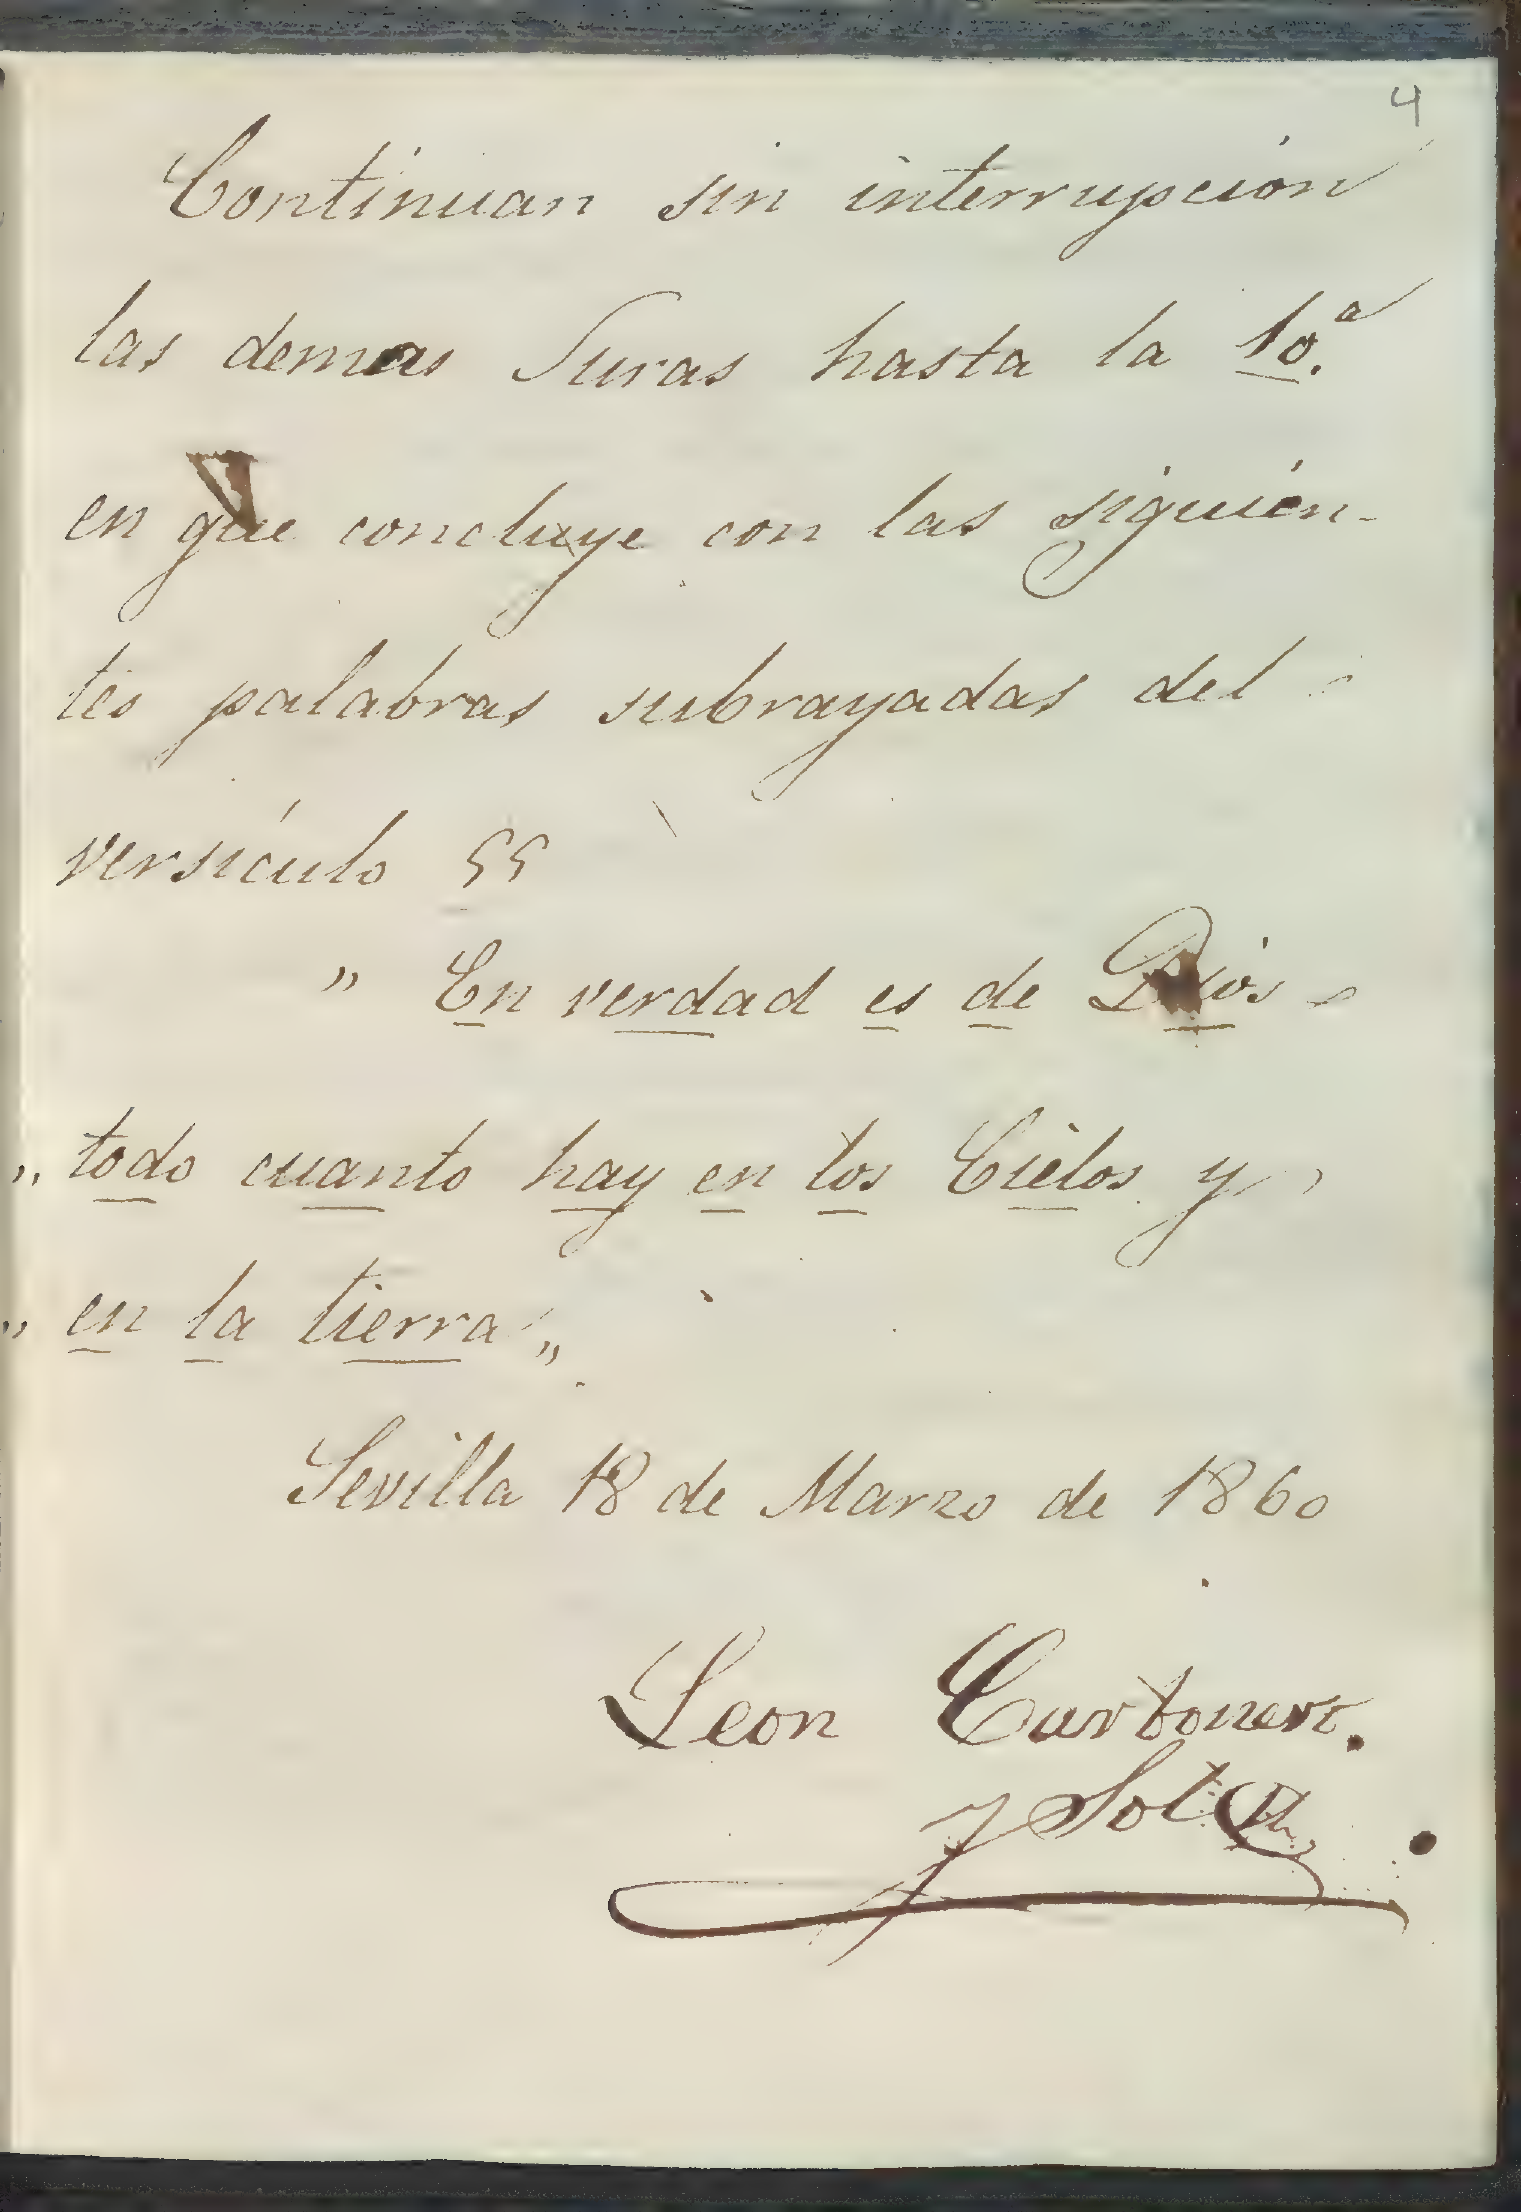 4
Continuan sin interrupción
las demas Suras hasta la 10.ª
en que concluye con las siguien-
tes palabras subrayadas del
versículo 55
" En verdad es de Dios
" todo cuanto hay en los Cielos y
" en la tierra "
Sevilla 18 de Marzo de 1860
Leon Carbonero.
y Sol